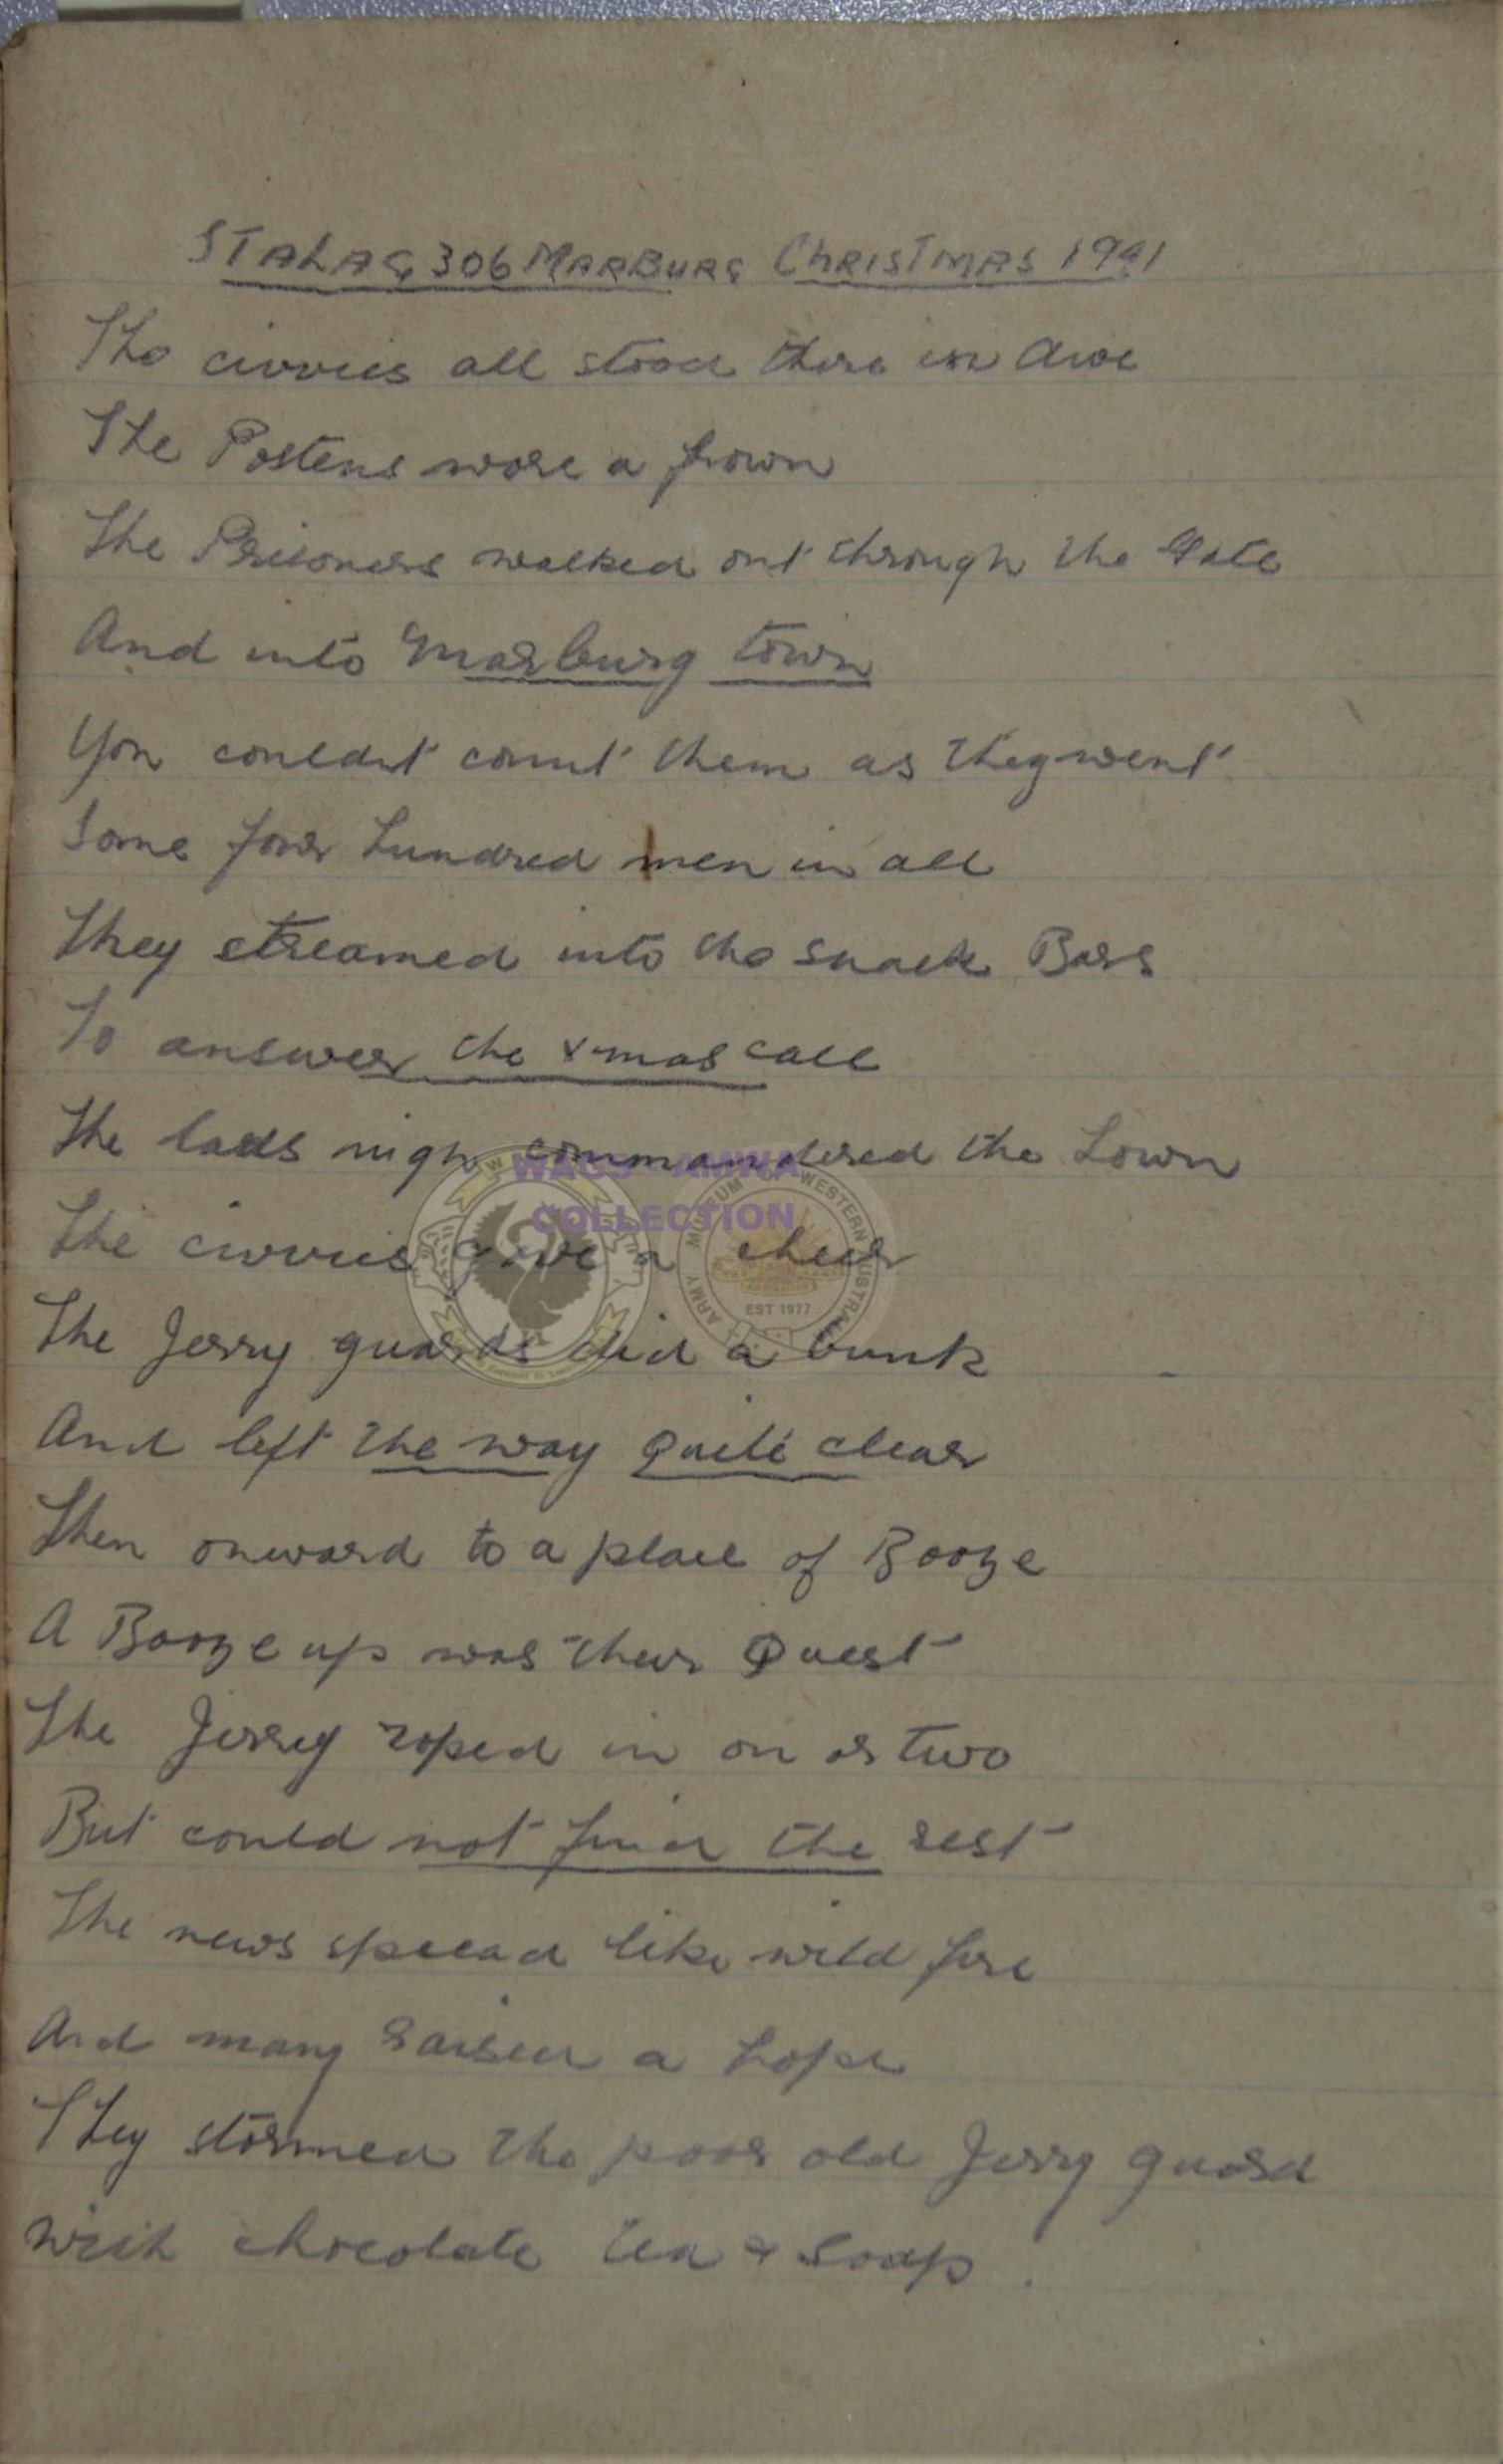 STALAG 306 MARBURG CHRISTMAS 1941
The civvies all stood there in awe
The Postens wore a frown
The Prisoners walked out through the Gate
And into Marburg town
You couldn't count them as they went
Some four hundred men in all
They streamed into the snack Bars
To answer the x-mas call
The lads nigh commandered the town
The civvies gave a cheer
The Jerry guards did a bunk
And left the way quite clear
Then onward to a place of Booze
A Booze up was their Quest
The Jerry roped in on or two
But could not find the rest
The news spread like wild fire
And many raised a hope
They stormed the poor old Jerry guard
With chocolate tea & soap.
WAGS - AMWA
COLLECTION
ARMY MUSEUM OF WESTERN AUSTRALIA
EST 1977